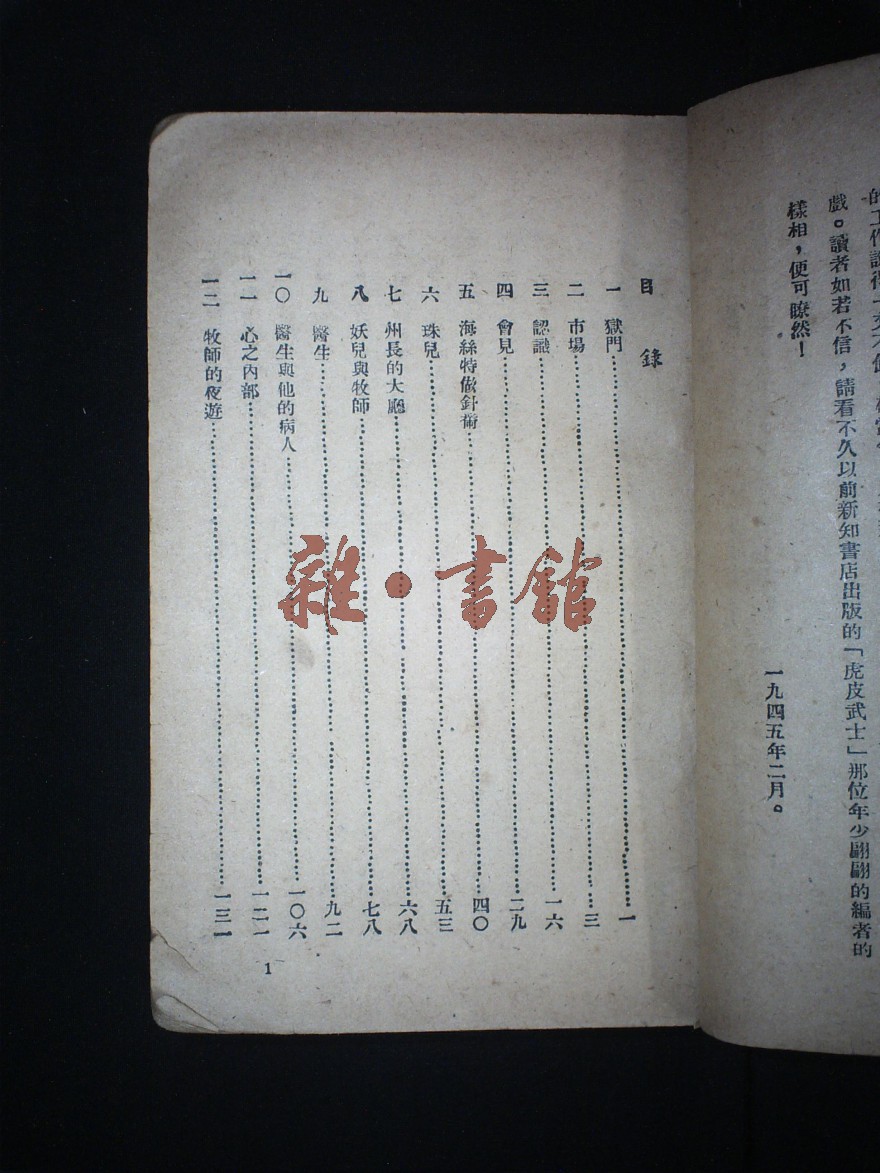 戲。讀者如若不信，請看不久以前新知書店出版的「虎皮武士」那位年少翩翩的編者的
樣相，便可瞭然！
一九四五年二月。
目錄
一 獄門 一
二 市場 三
三 認識 一六
四 會見 二九
五 海絲特做針黹 四〇
六 珠兒 五三
七 州長的大廳 六八
八 妖兒與牧師 七八
九 醫生 九二
一〇 醫生與他的病人 一〇六
一一 心之內部 一二一
一二 牧師的夜遊 一三一
1
雜·書館